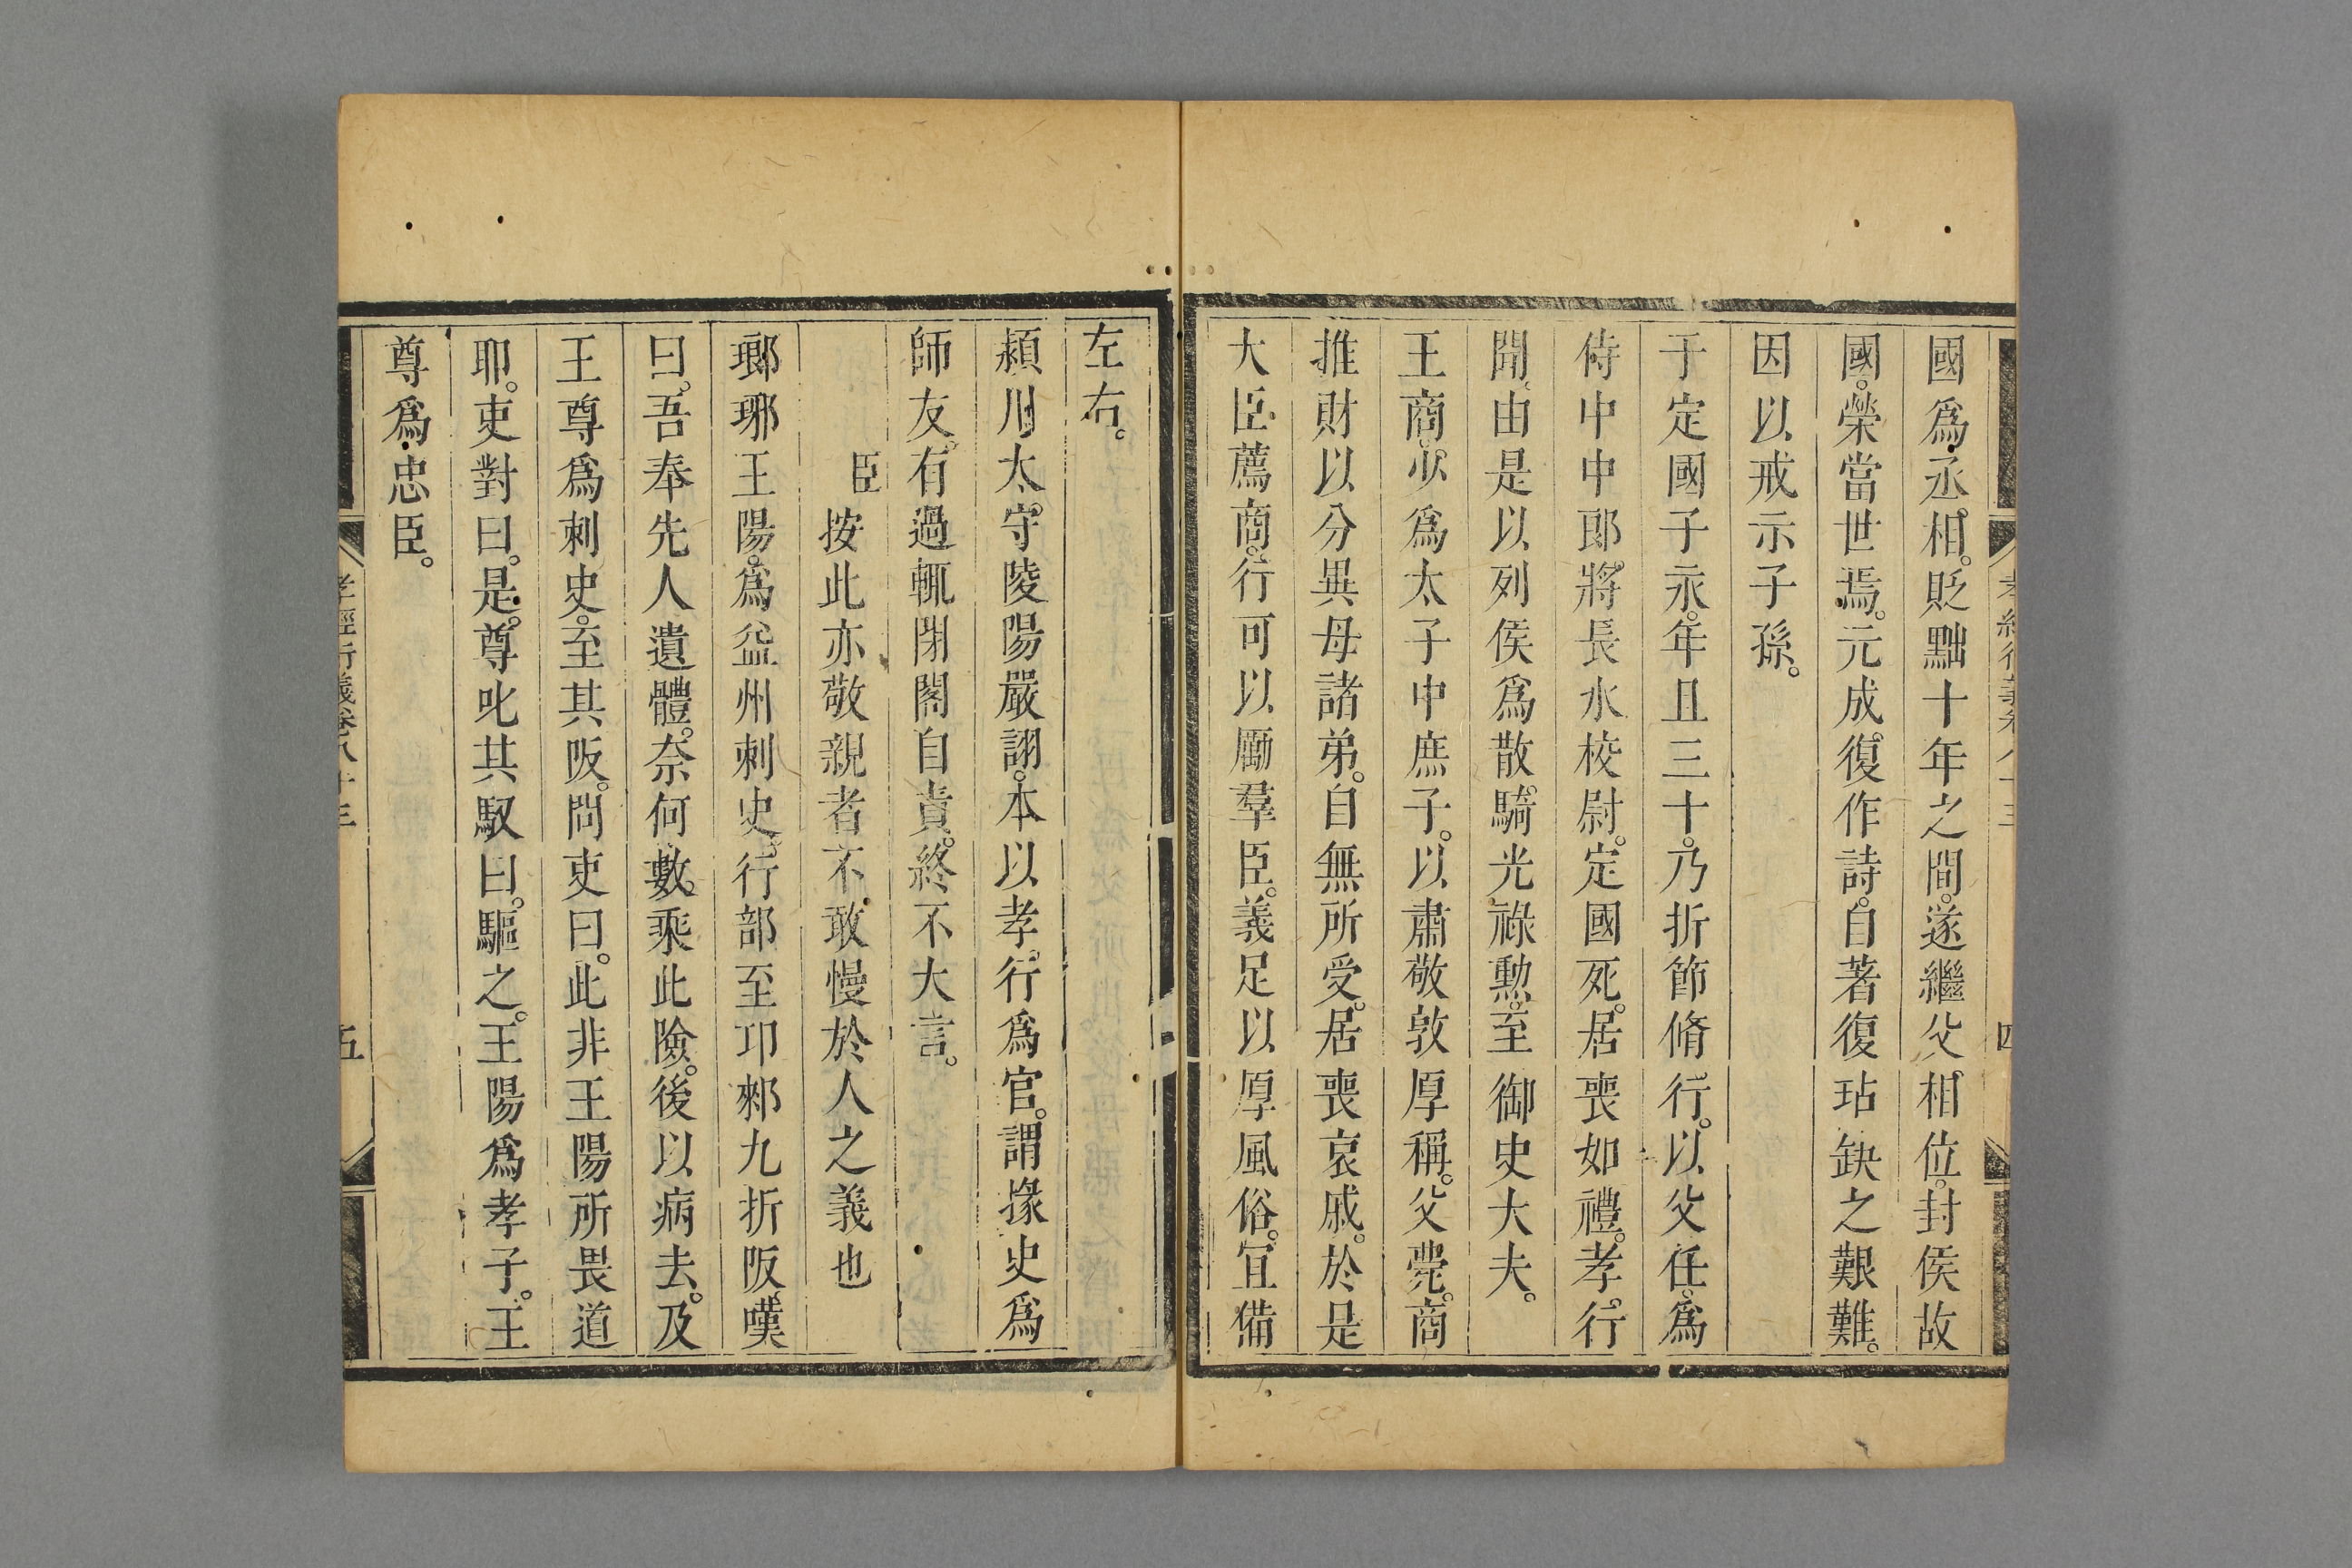 國爲丞相。貶黜十年之間。遂繼父相位。封侯故
國。榮當世焉。元成復作詩。自著復玷缺之艱難。
因以戒示子孫。
于定國子永。年且三十。乃折節脩行。以父任。爲
侍中中郎將。長水校尉。定國死。居喪如禮。孝行
聞。由是以列侯爲散騎光祿勲。至御史大夫。
王商。少爲太子中庶子。以肅敬敦厚稱。父薨。商
推財以分異母諸弟。自無所受。居喪哀戚。於是
大臣薦商。行可以厲羣臣。義足以厚風俗。宜備
左右。
潁川太守。陵陽嚴詡。本以孝行爲官。謂掾史爲
師友。有過輒閉閤自責。終不大言。
臣按此亦敬親者不敢慢於人之義也
瑯琊王陽。爲益州刺史。行部至卭郲九折阪。嘆
曰。吾奉先人遺體。奈何數乘此險。後以病去。及
王尊爲刺史。至其阪。問吏曰。此非王陽所畏道
耶。吏對曰。是。尊叱其馭曰。驅之。王陽爲孝子。王
尊爲忠臣。
孝經衍義卷八十三
五